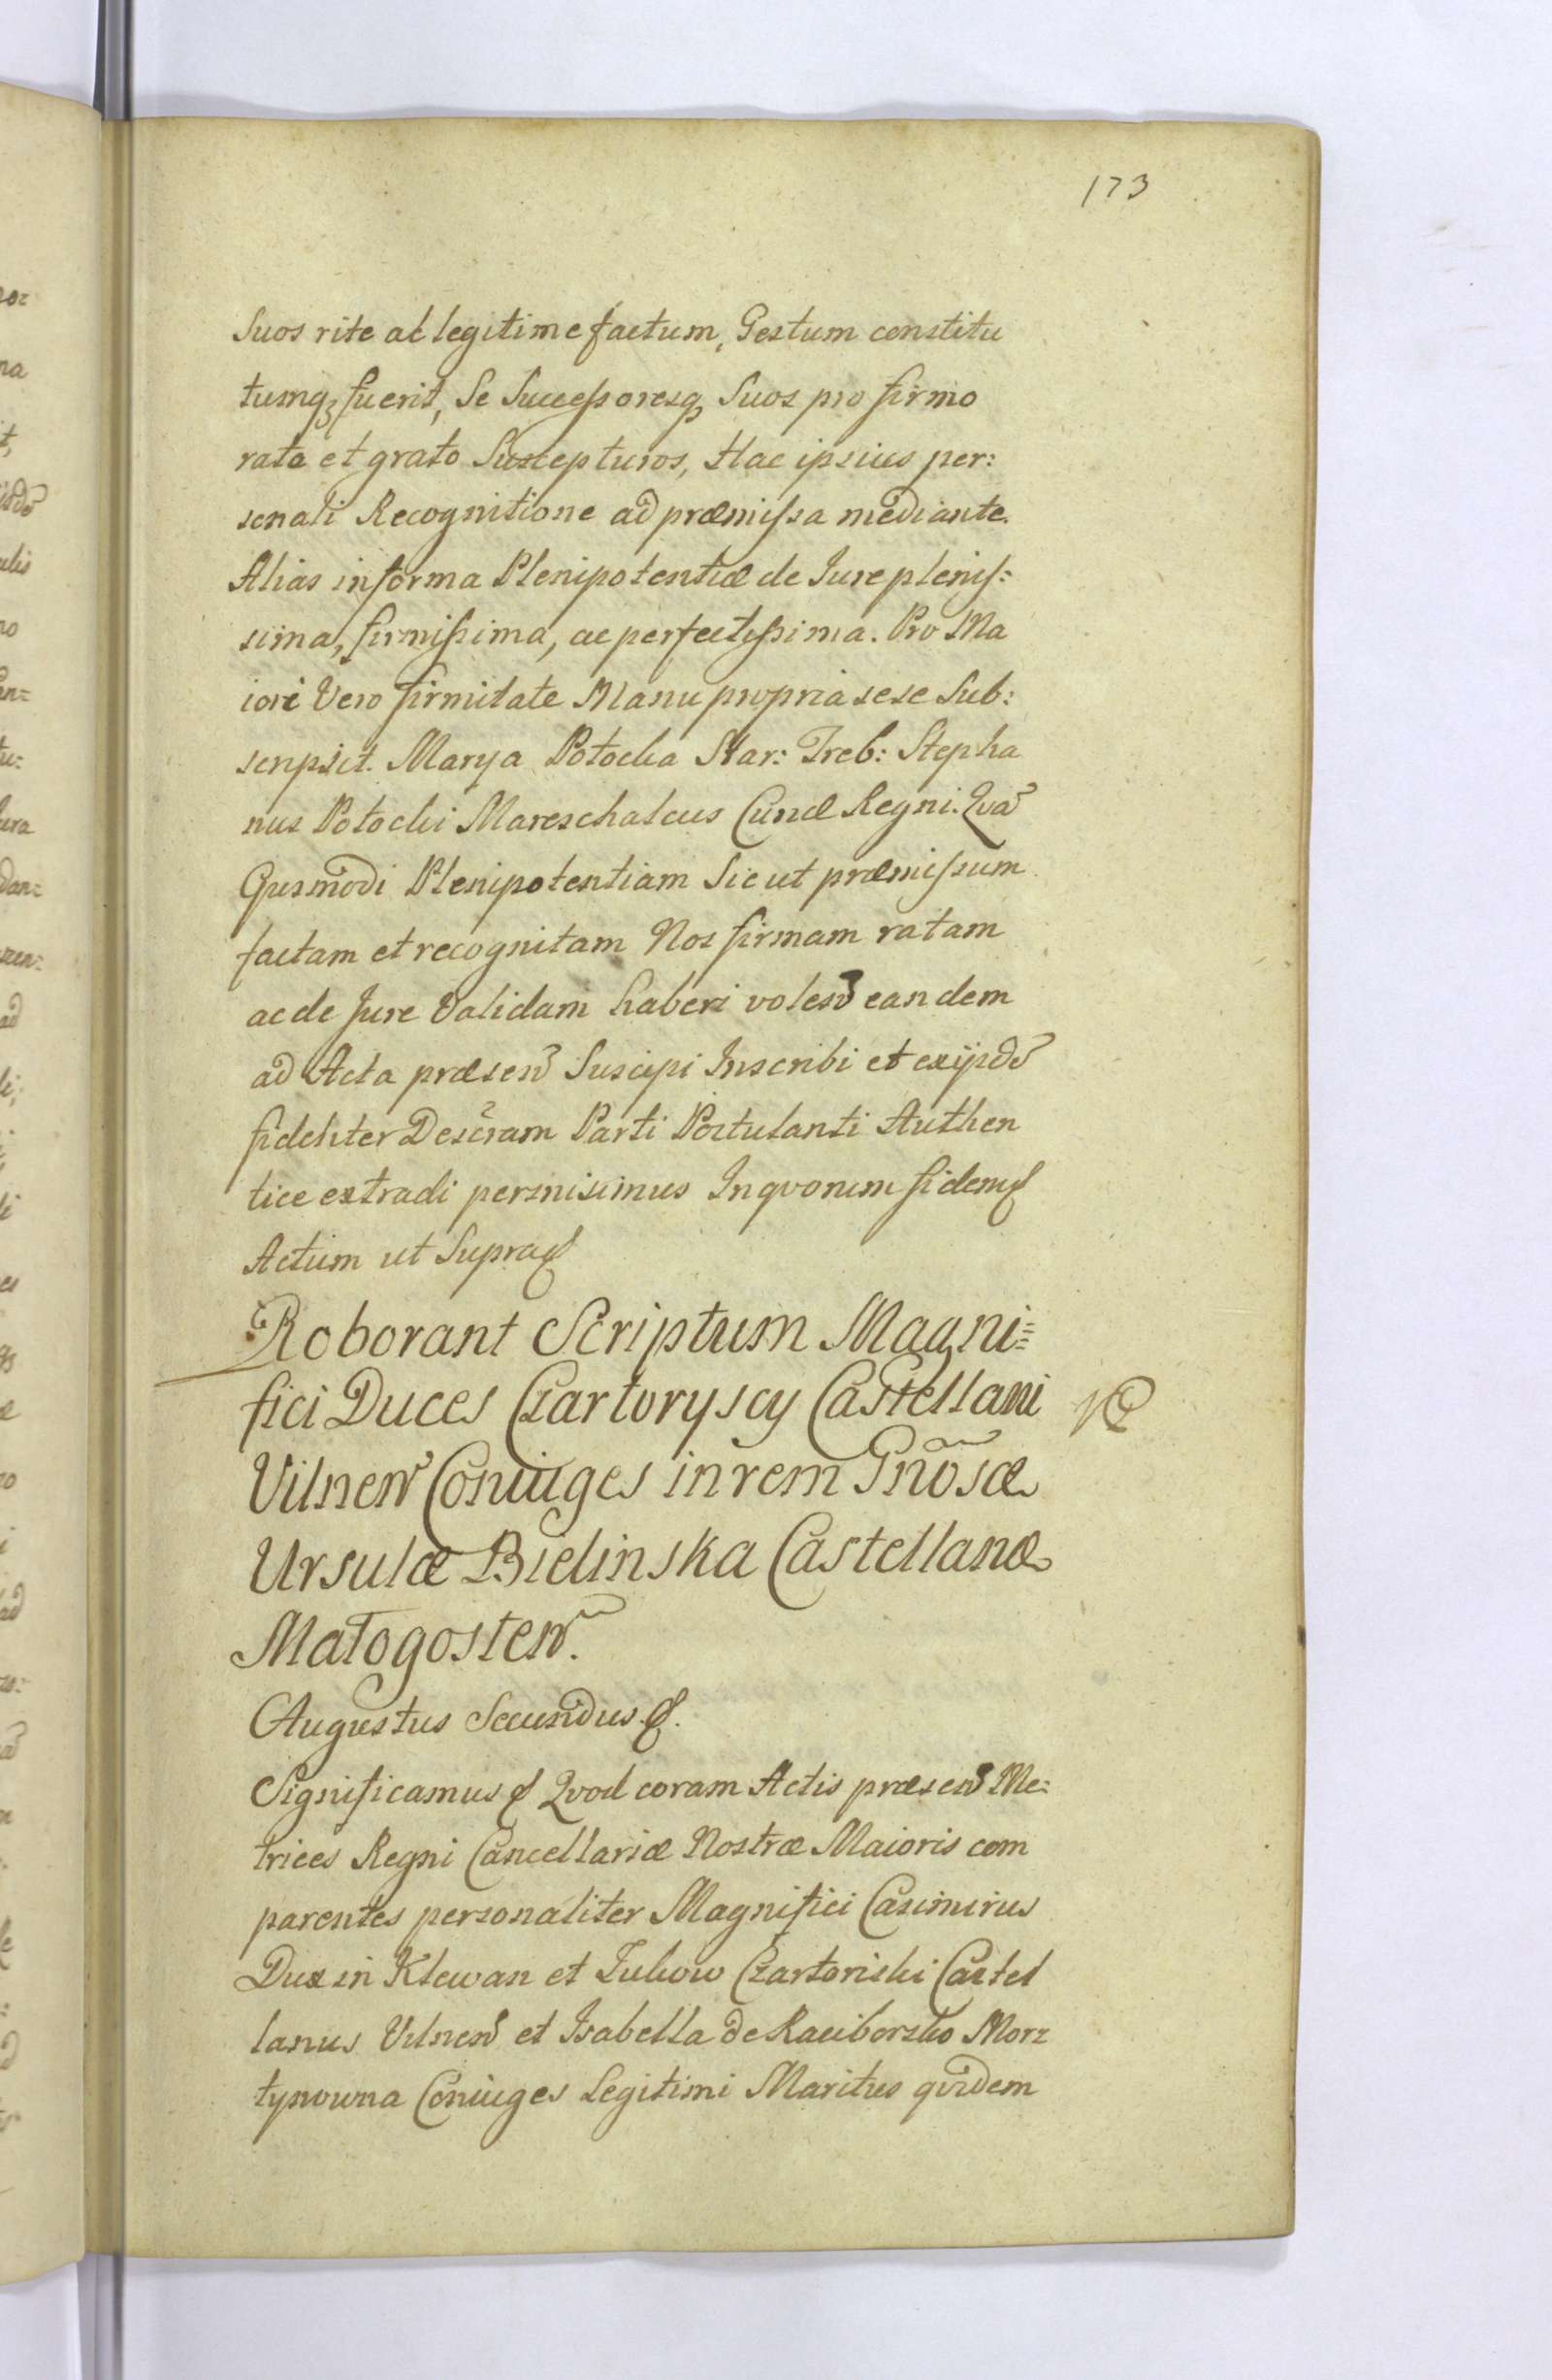 173
Suos rite ac legitime factum, Gestum constitu
tumq₃ fuerit, Se Successoresq₃ Suos pro firmo
rato et grato Suscepturos, Hac ipsius per:
sonali Recognitione ad præmissa mediante.
Alias in forma Plenipotentiæ de Jure plenis:
sima, firmissima, ac perfectissima. Pro Ma
iori Vero firmitate Manu propria sese Sub:
scripsit. Marya Potocka Star: Treb: Stepha
nus Potocki Mareschalcus Curiæ Regni. Qva
Ejusmodi Plenipotentiam Sicut præmissum
factam et recognitam Nos firmam ratam
ac de Jure Validam haberi volen eandem
ad Acta præsen Suscipi Inscribi et exijsde
fideliter Descram Parti Postulanti Authen
tice extradi permisimus In qvorum fidem
Actum ut Supra
Roborant Scriptum Magni=
fici Duces Czartoryscy Castellani
Vilnen Coniuges in rem Gnosæ
Ursulæ Bielinska Castellanæ
Małogosten.
Augustus Secundus.
Significamus Qvod coram Actis præsen Me:
trices Regni Cancellariæ Nostræ Maioris com
parentes personaliter Magnifici Casimirus
Dux in Klewan et Zukow Czartoriski Castel
lanus Vilnen et Isabella de Raciborsko Mors
tynowna Coniuges Legitimi Maritus qvidem